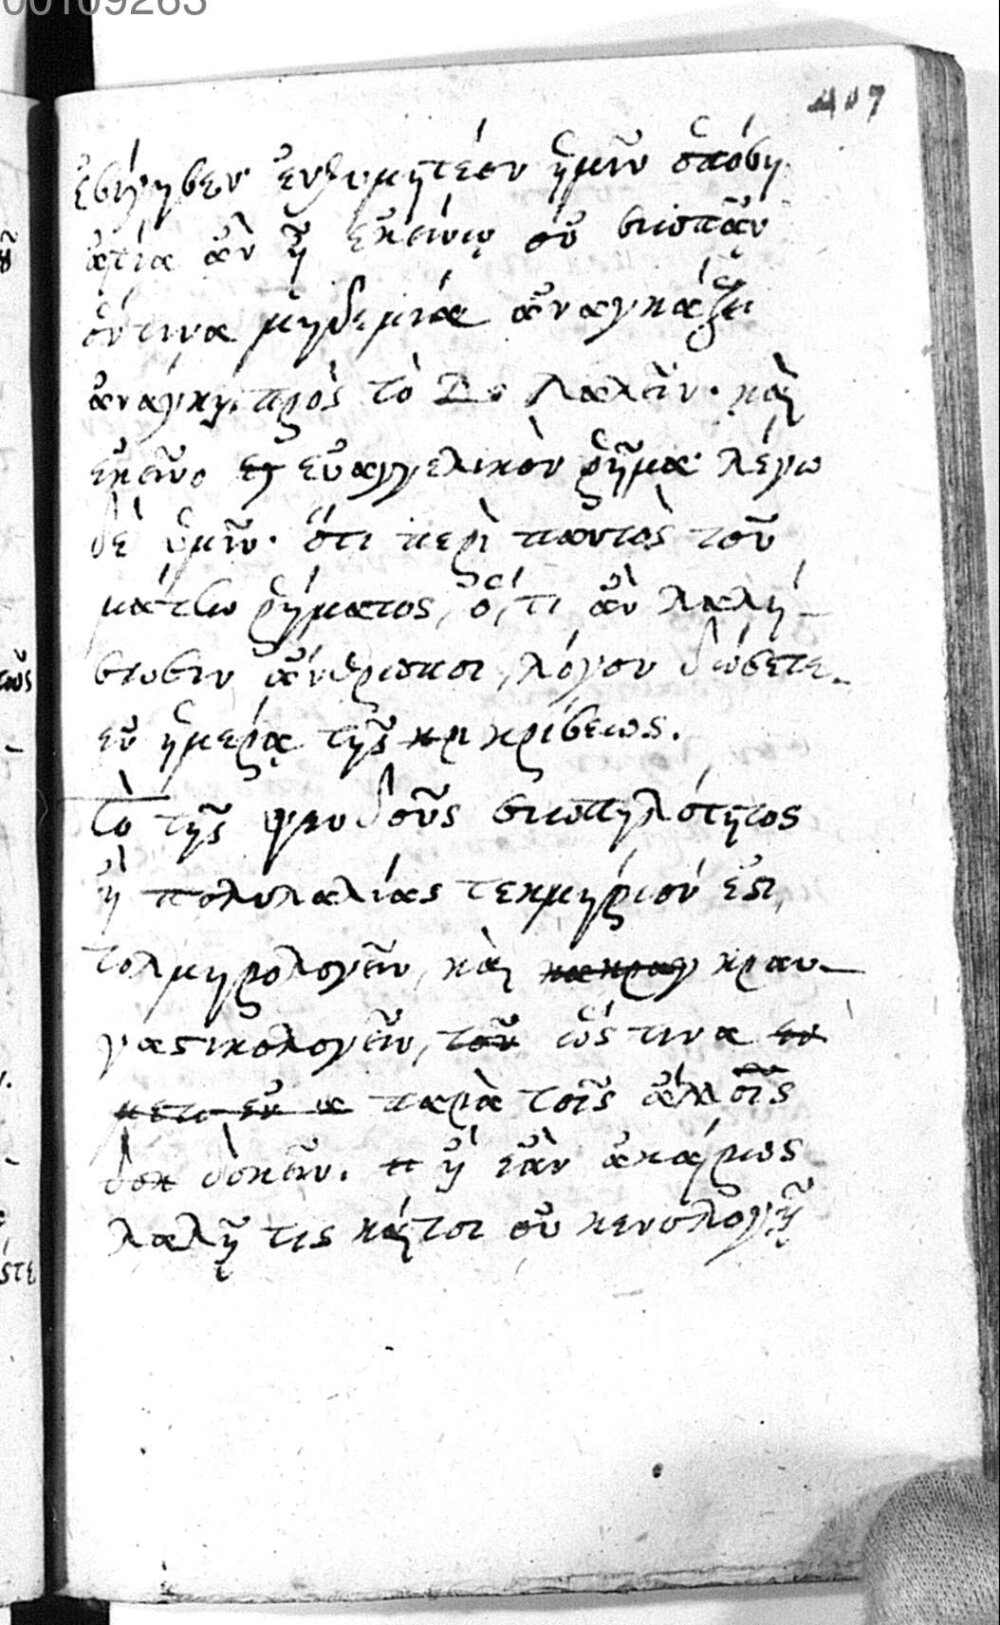 00109263
407
ἐνθυμητέον ἡμῖν ὁπόση
αἰτία ἂν ᾖ ἐκείνῳ οὐ σιωπᾶν
ὅντινα μηδεμία ἀναγκάζει
ἀνάγκη πρὸς τὸ λαλεῖν· καὶ
ἐκεῖνο εὐαγγελικὸν ῥῆμα· λέγω
δὲ ὑμῖν· ὅτι περὶ παντὸς τοῦ
ματαίου ῥήματος, ὅ,τι ἂν λαλή-
σωσιν ἄνθρωποι, λόγον δώσετε
ἐν ἡμέρᾳ τῆς κρίσεως.
τὸ τῆς ψευδοῦς σιωπηλότητος
ἢ πολυλαλίας τεκμήριόν ἐστι,
τολμηρολογεῖν, καὶ κραυ-
γαστικολογεῖν, ὥς τινα
παρὰ τοῖς ἄλλοις
δοκεῖν. ἢ ἐὰν ἀκαίρως
λαλῇ τις καίτοι οὐ κενολογῇ
τοὺς
στε